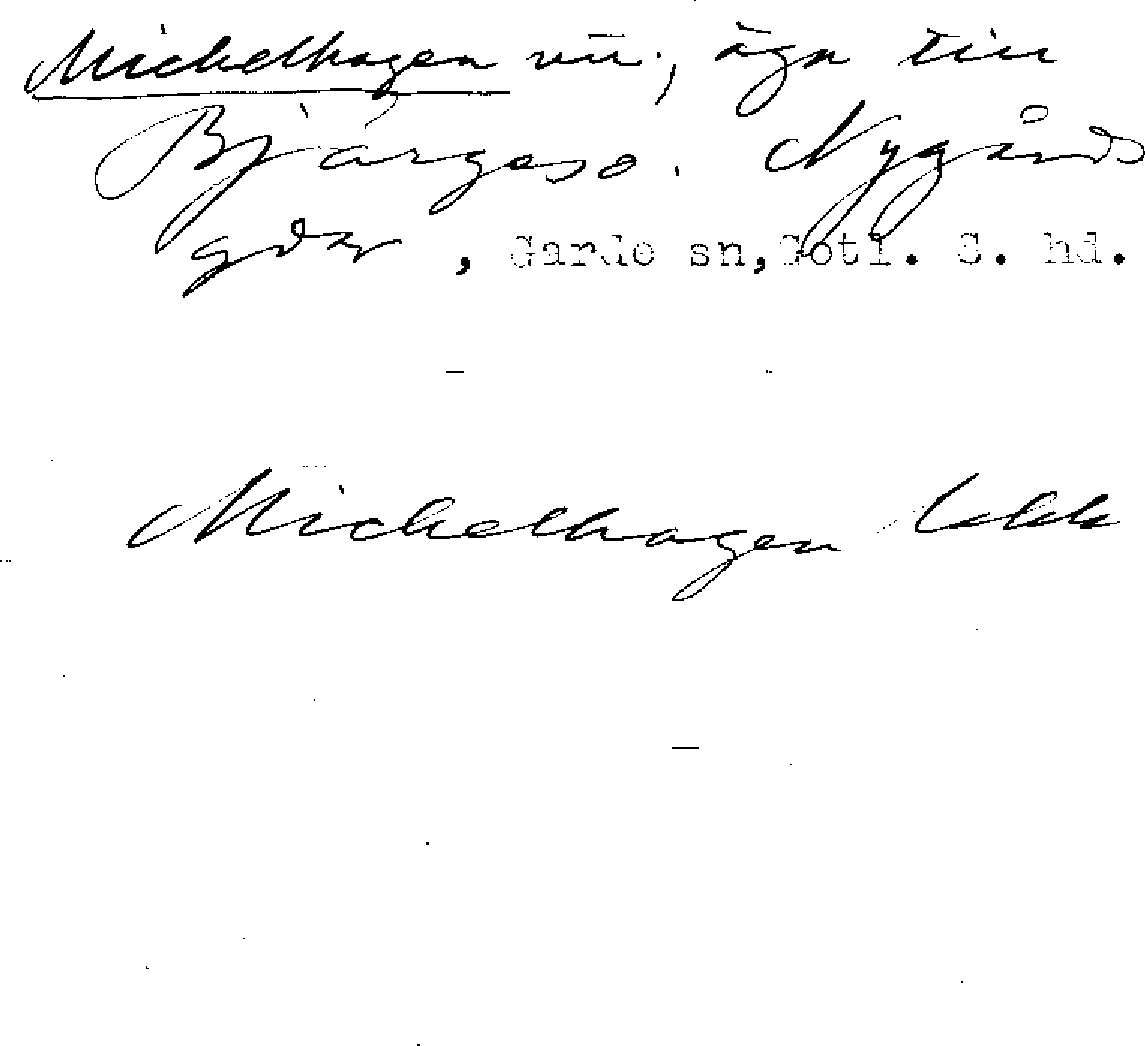 Michelhagen nu; äga till
Bjärges o. Nygårds
gdar, Garde sn, Gotl. S. hd.
Michelhagen